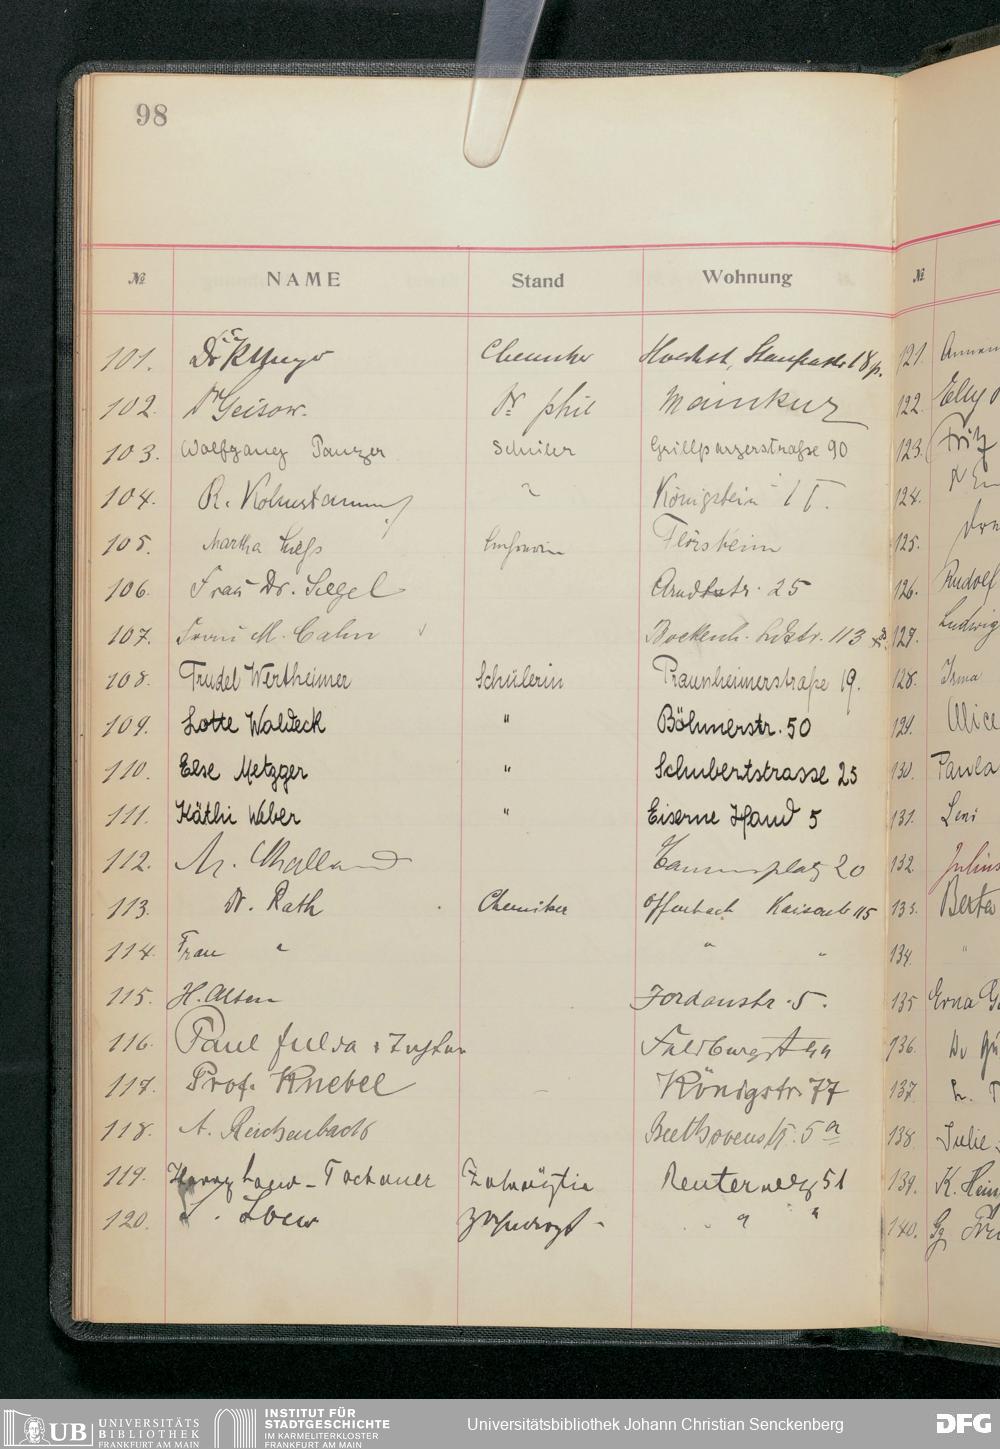 98
№ NAME Stand Wohnung
101. Dr Chemiker Hoechst, 18 p.
102. Dr Geisow. Dr phil Mainkur
103. Wolfgang Panzer Schüler Grillparzerstraße 90
104. R. Kohnstamm " Königstein i T.
105. Martha Flörsheim
106. Frau Dr. Segel Arndtstr. 25
107. Frau M. Cahn Bockenh. Ldstr. 113
108. Trudel Wertheimer Schülerin Praunheimerstraße 19.
109. Lotte Waldeck " Böhmerstr. 50
110. Else Metzger " Schubertstrasse 25
111. Käthi Weber " Eiserne Hand 5
112. 20
113. Dr. Rath Chemiker Offenbach Kaiserstr 115
114. Frau " " "
115. H. Alten Jordanstr. 5.
116. Paul Fulda
117. Prof. Knebel Königstr. 77
118. A. Reichenbach Beethovenstr. 5 a
119. Tochauer Zahnärztin Reuterweg 51
120. Loew Zahnarzt " "
№
121.
122. Elly
123. Fritz
124.
125.
126. Rudolf
127. Ludwig
128. Irma
129. Alice
130. Paula
131. Leni
132. Julius
133. Berta
134. "
135 Erna
136.
137.
138. Julie
139. K.
140.
UB UNIVERSITÄTS
BIBLIOTHEK
FRANKFURT AM MAIN
INSTITUT FÜR
STADTGESCHICHTE
IM KARMELITERKLOSTER
FRANKFURT AM MAIN
Universitätsbibliothek Johann Christian Senckenberg
DFG